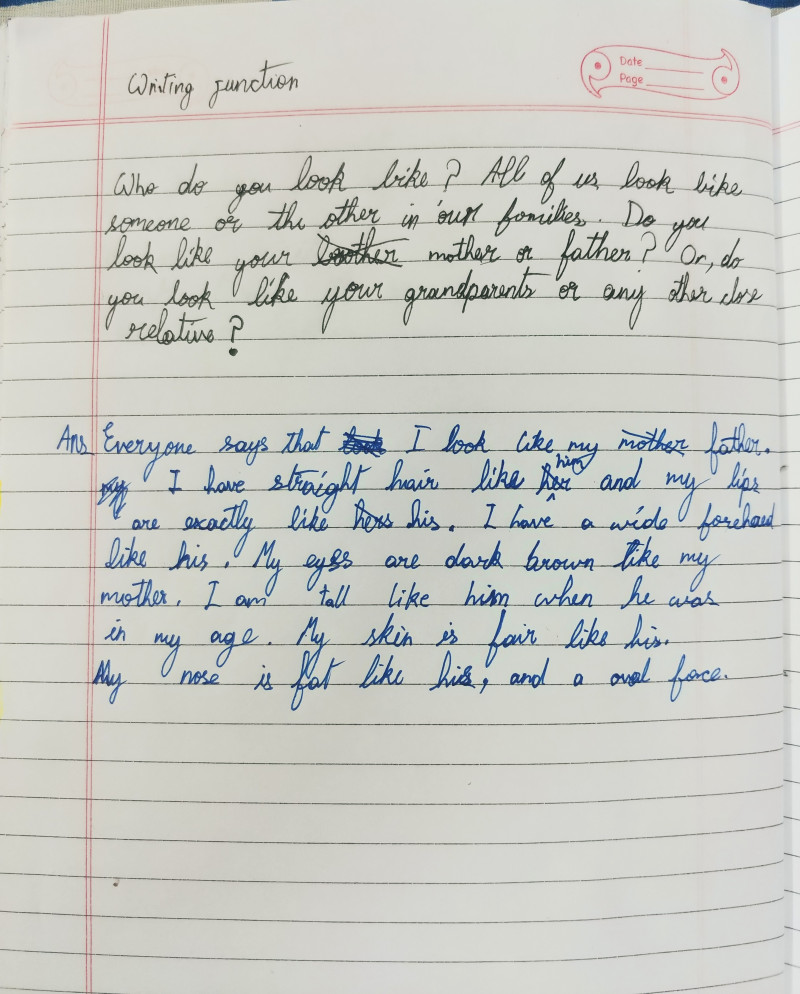 Writing junction
Date
Page
Who do you look like? All of us look like
someone or the other in our families. Do you
look like your mother or father? Or, do
you look like your grandparents or any other close
relative?
Ans Everyone says that I look like my father.
I have straight hair like him and my lips
are exactly like his. I have a wide forehead
like his. My eyes are dark brown like my
mother. I am tall like him when he was
in my age. My skin is fair like his.
My nose is fat like his, and a oval face.